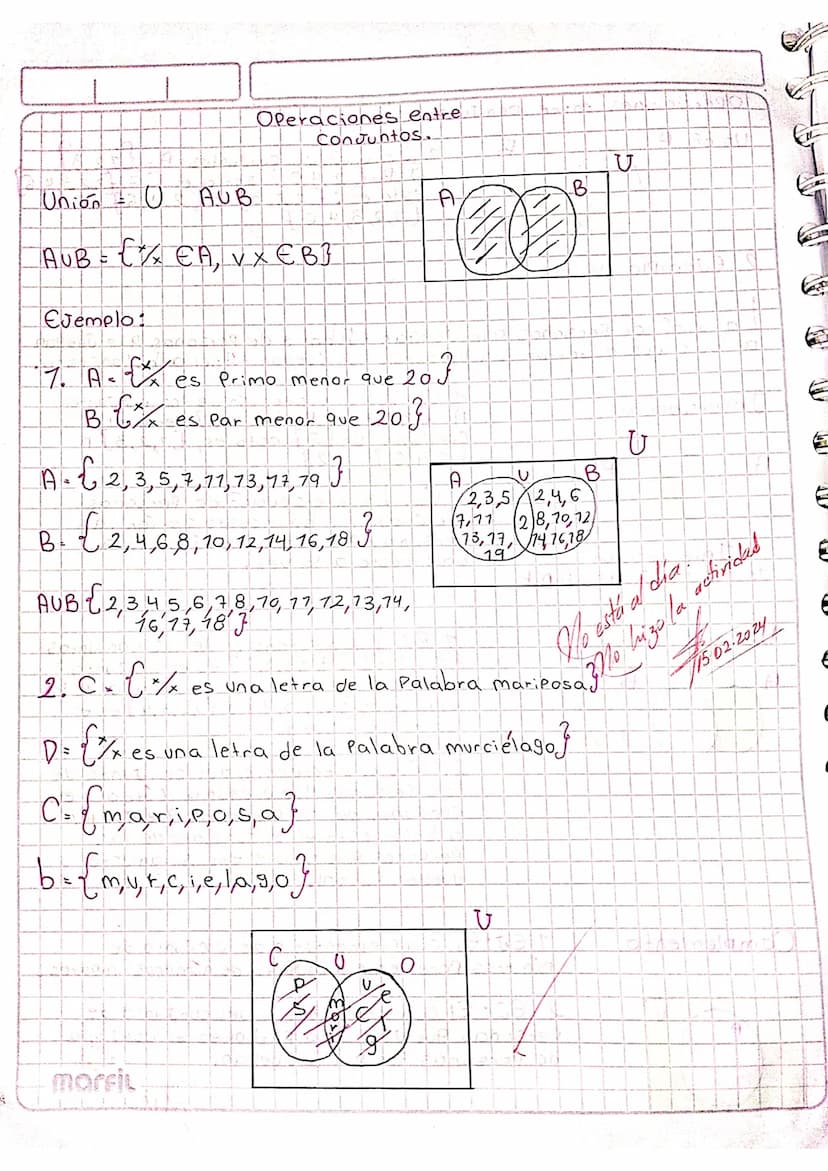 Operaciones entre
Conjuntos.
Unión = U AUB
A B U
AUB = {x/x ∈A, v x ∈B}
Ejemplo:
1. A = {x/x es Primo menor que 20}
B {x/x es Par menor que 20}
A = {2,3,5,7,11,13,17,19}
B = {2,4,6,8,10,12,14,16,18}
U
A U B
2,3,5 2,4,6
7,11 2 8,10,12
13,17, 14 16,18
19
AUB {2,3,4,5,6,7,8,10,11,12,13,14,
16,17,18}
No está al día.
No hizo la actividad
15.02.2024
2. C = {x/x es una letra de la Palabra mariposa}
D = {x/x es una letra de la Palabra murciélago}
C = {m,a,r,i,p,o,s,a}
b = {m,u,r,c,i,e,l,a,g,o}
U
C U O
P
S
u
e
c
l
g
morfil